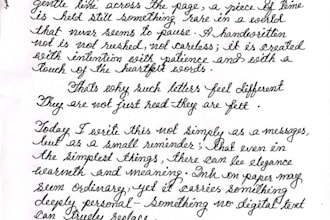 gentle line across the page, a piece of time
is held still something rare in a world
that never seems to pause. A handwritten
not is not rushed, not careless; it is created
with intention with patience and with a
touch of the heartfelt words.
Thats why such letters feel different
They are not just read they are felt.
Today I write this not simply as a messages,
but as a small reminder; that even in
the simplest things, there can be elegance
warmth and meaning. Ink on paper may
seem ordinary, yet it carries something
deeply personal - something no digital text
can truely replace.